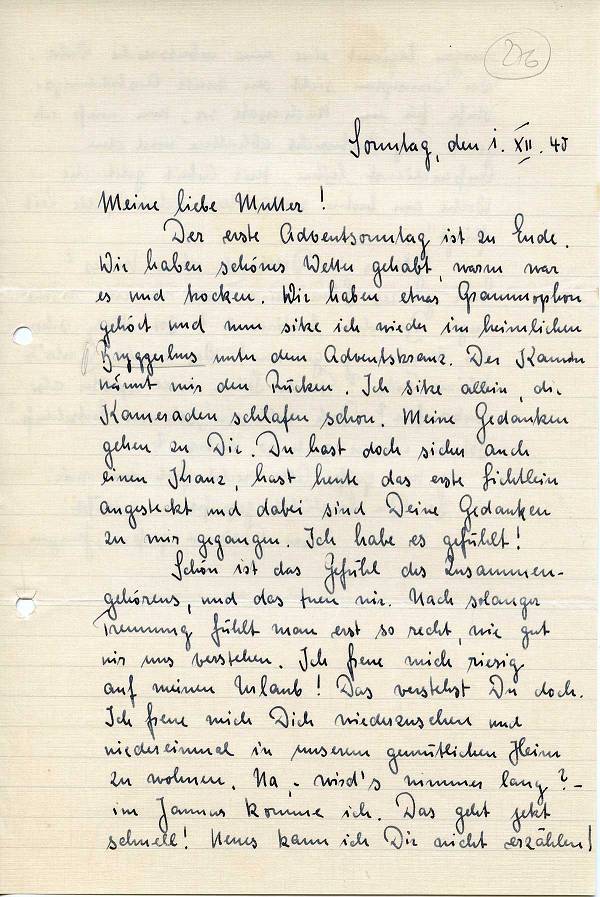 276
Sonntag, den 1. XII. 40
Meine liebe Mutter!
Der erste Adventsonntag ist zu Ende.
Wir haben schönes Wetter gehabt, warm war
es und trocken. Wir haben etwas Grammophon
gehört und nun sitze ich wieder im heimlichen
Bryggerhus unter dem Adventskranz. Der Kamin
wärmt mir den Rücken. Ich sitze allein, die
Kameraden schlafen schon. Meine Gedanken
gehen zu Dir. Du hast doch sicher auch
einen Kranz, hast heute das erste Lichtlein
angesteckt und dabei sind Deine Gedanken
zu mir gegangen. Ich habe es gefühlt!
Schön ist das Gefühl des Zusammen-
gehörens, und das tuen wir. Nach solanger
Trennung fühlt man erst so recht, wie gut
wir uns verstehen. Ich freue mich riesig
auf meinen Urlaub! Das verstehst Du doch.
Ich freue mich Dich wiederzusehen und
wiedereinmal in unserem gemütlichen Heim
zu wohnen. Na, - wird's nimmer lang? -
im Januar komme ich. Das geht jetzt
schnell! Neues kann ich Dir nicht erzählen!